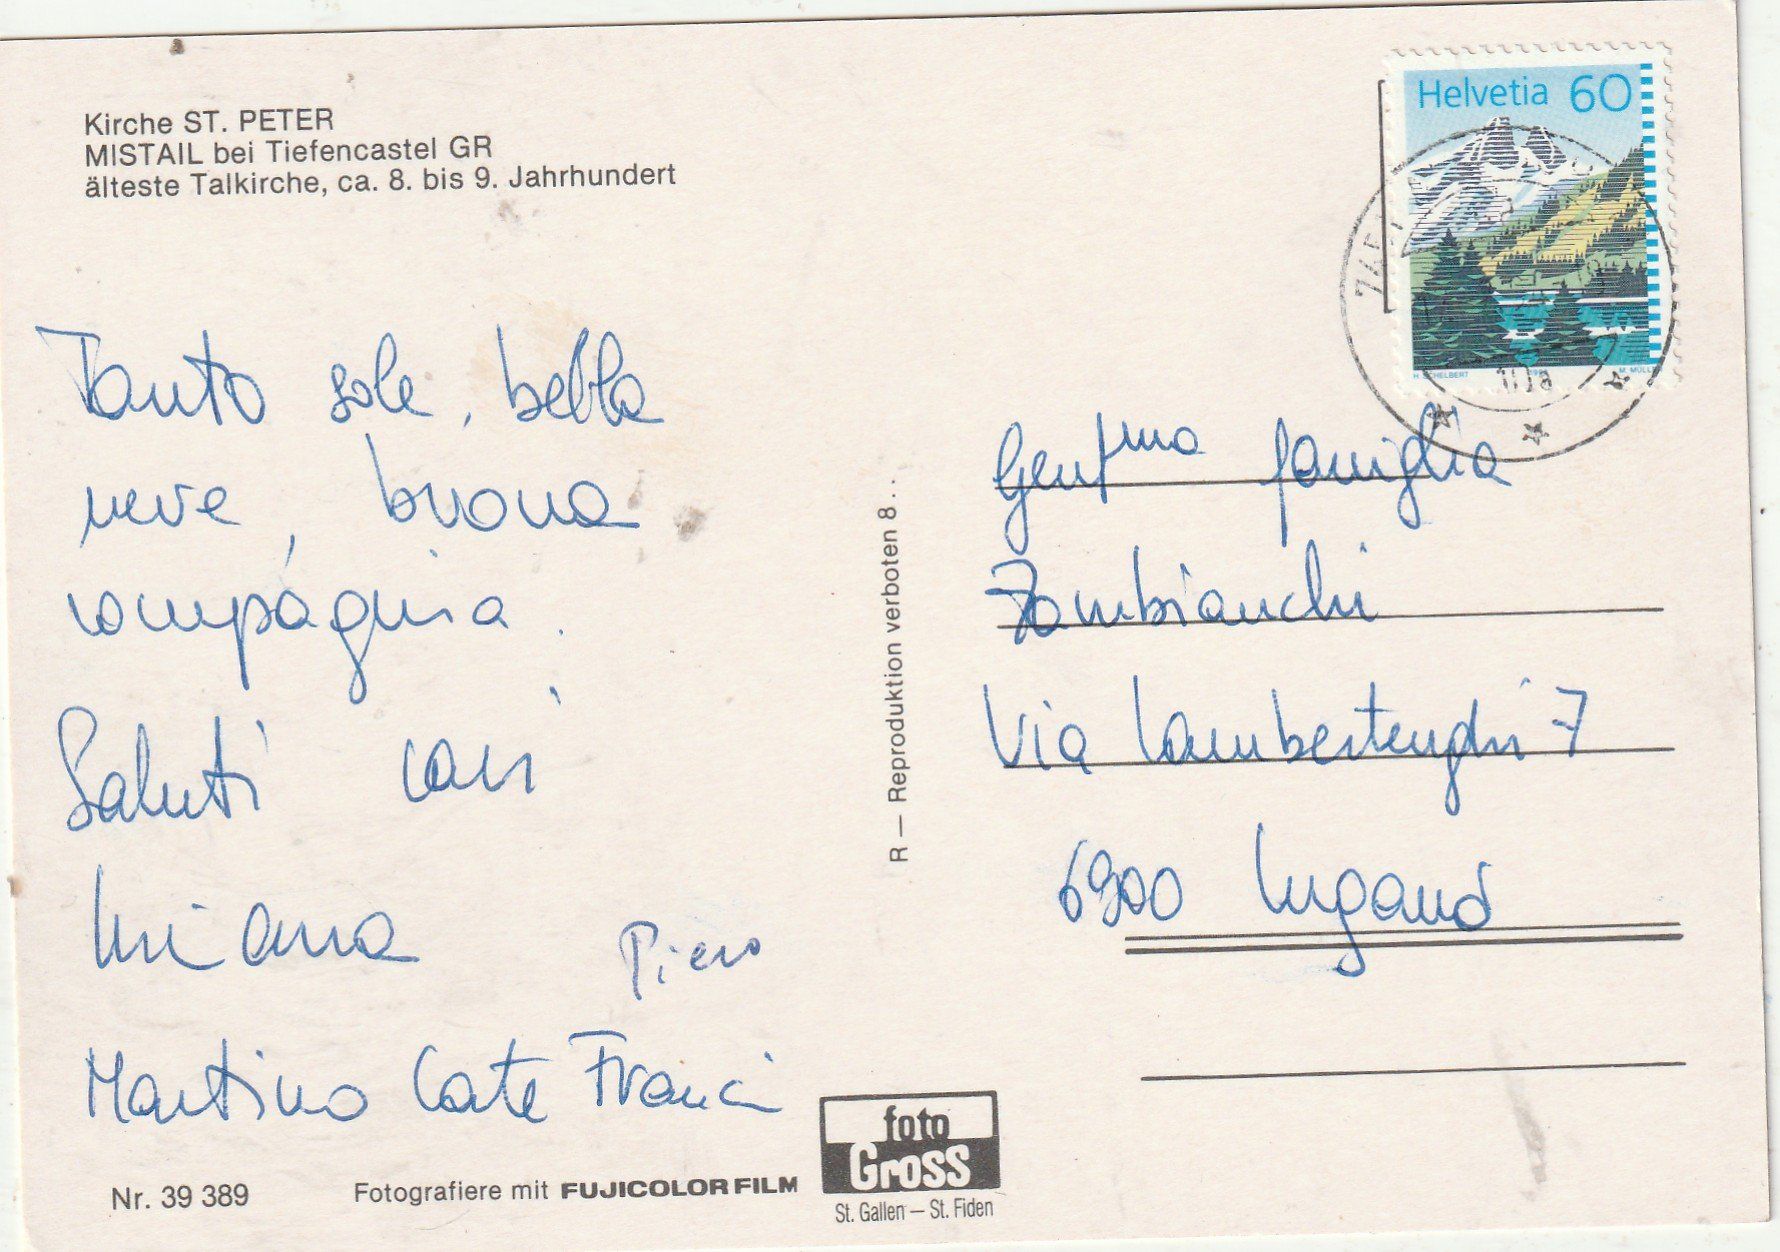 Kirche ST. PETER
MISTAIL bei Tiefencastel GR
älteste Talkirche, ca. 8. bis 9. Jahrhundert
Tanto sole, bella
neve, buona
compagnia.
Saluti cari
Piero
Martino Cate Franci
Nr. 39 389
Fotografiere mit FUJICOLOR FILM
foto
Gross
St. Gallen – St. Fiden
R — Reproduktion verboten 8...
Helvetia 60
H. SCHELBERT
Gent.ma famiglia
Zambianchi
Via Lambertenghi 7
6900 Lugano